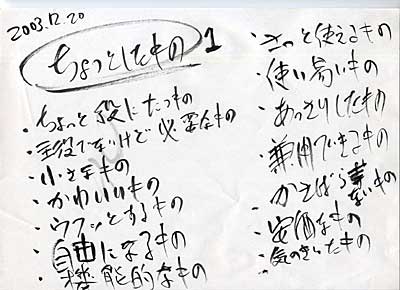 2003.12.20
ちょっとしたもの 1
・ちょっと役にたつもの
・主役でないけど必要なもの
・小さなもの
・かわいいもの
・ウフッとするもの
・自由になるもの
・機能的なもの
・さっと使えるもの
・使い易いもの
・あっさりしたもの
・兼用できるもの
・かさばらないもの
・安価なもの
・気のきいたもの